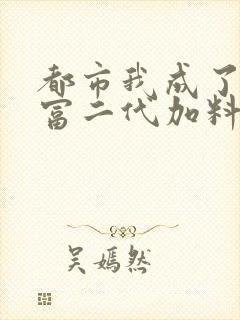 都市我成了
富二代加料
吴嫣然